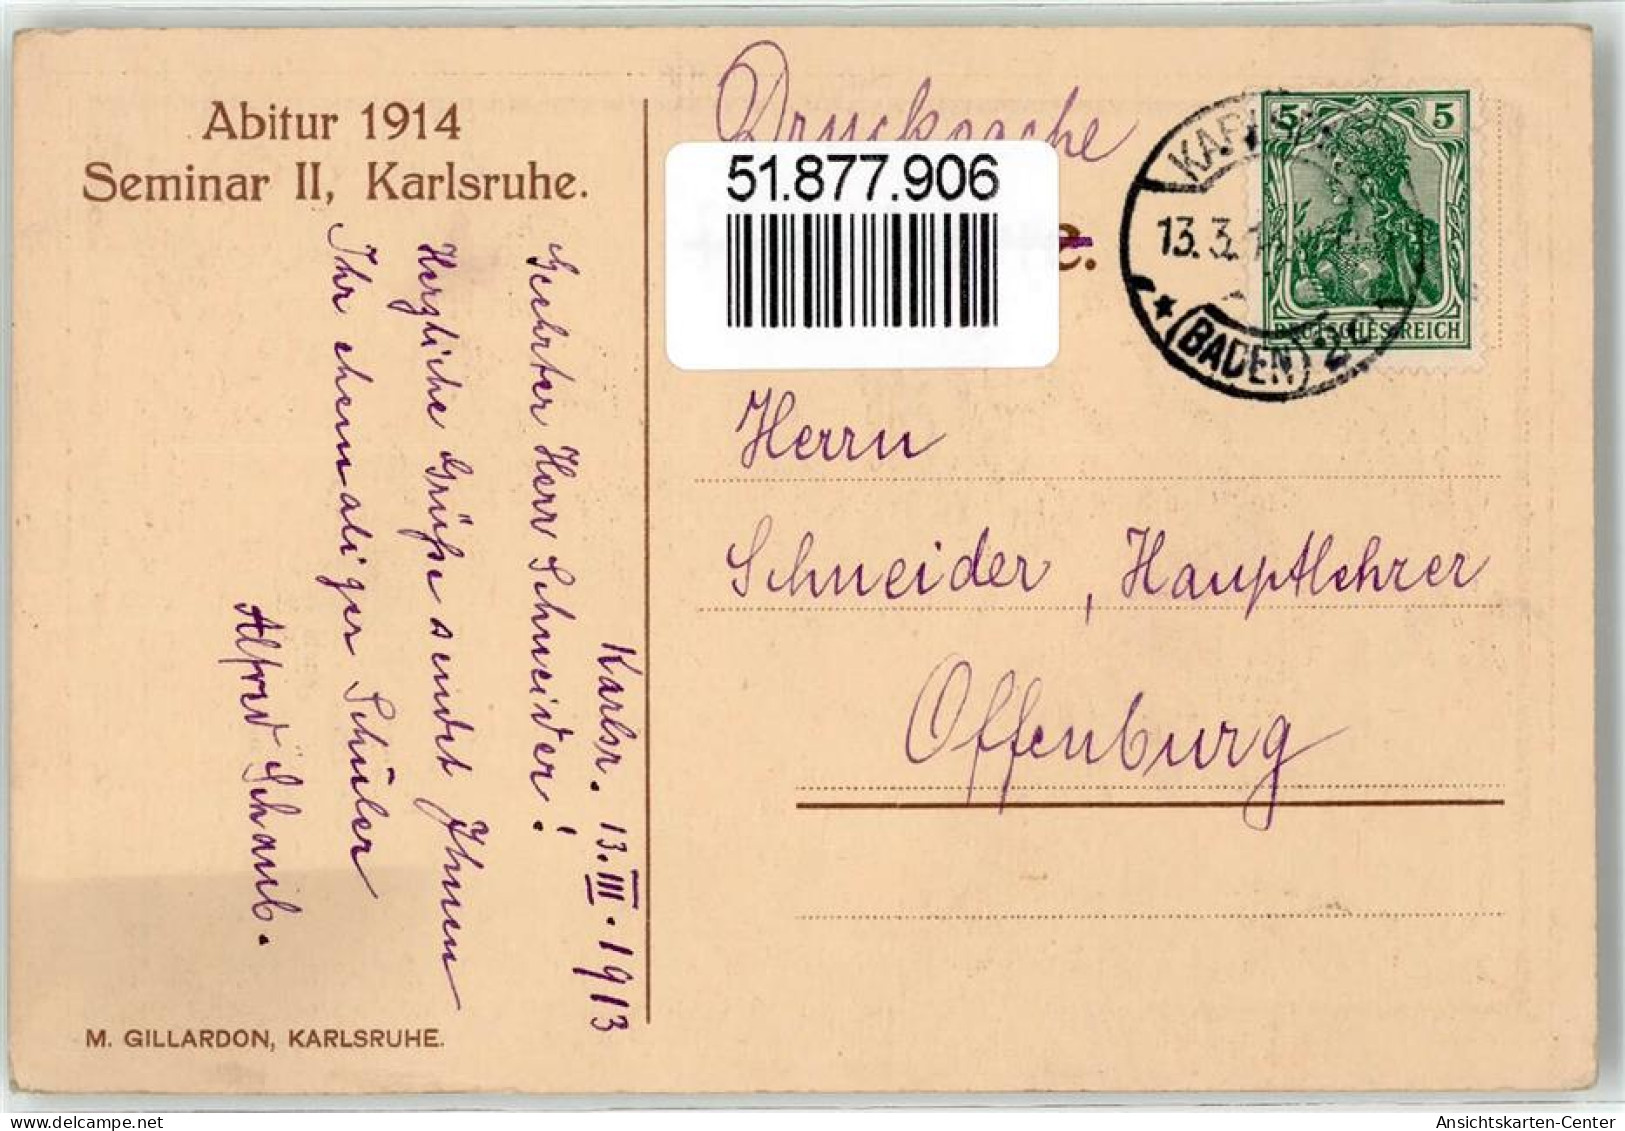 Abitur 1914
Seminar II, Karlsruhe.
Karlsr. 13.III.1913
Geehrter Herr Schneider!
Herzliche Grüße sendet Ihnen
Ihr ehemaliger Schüler
Alfred Schaub.
M. GILLARDON, KARLSRUHE.
Drucksache
51.877.906
e.
13.3.
* (BADEN) 2c
5 5
DEUTSCHES REICH
Herrn
Schneider, Hauptlehrer
Offenburg
Ansichtskarten-Center
www.delcampe.net